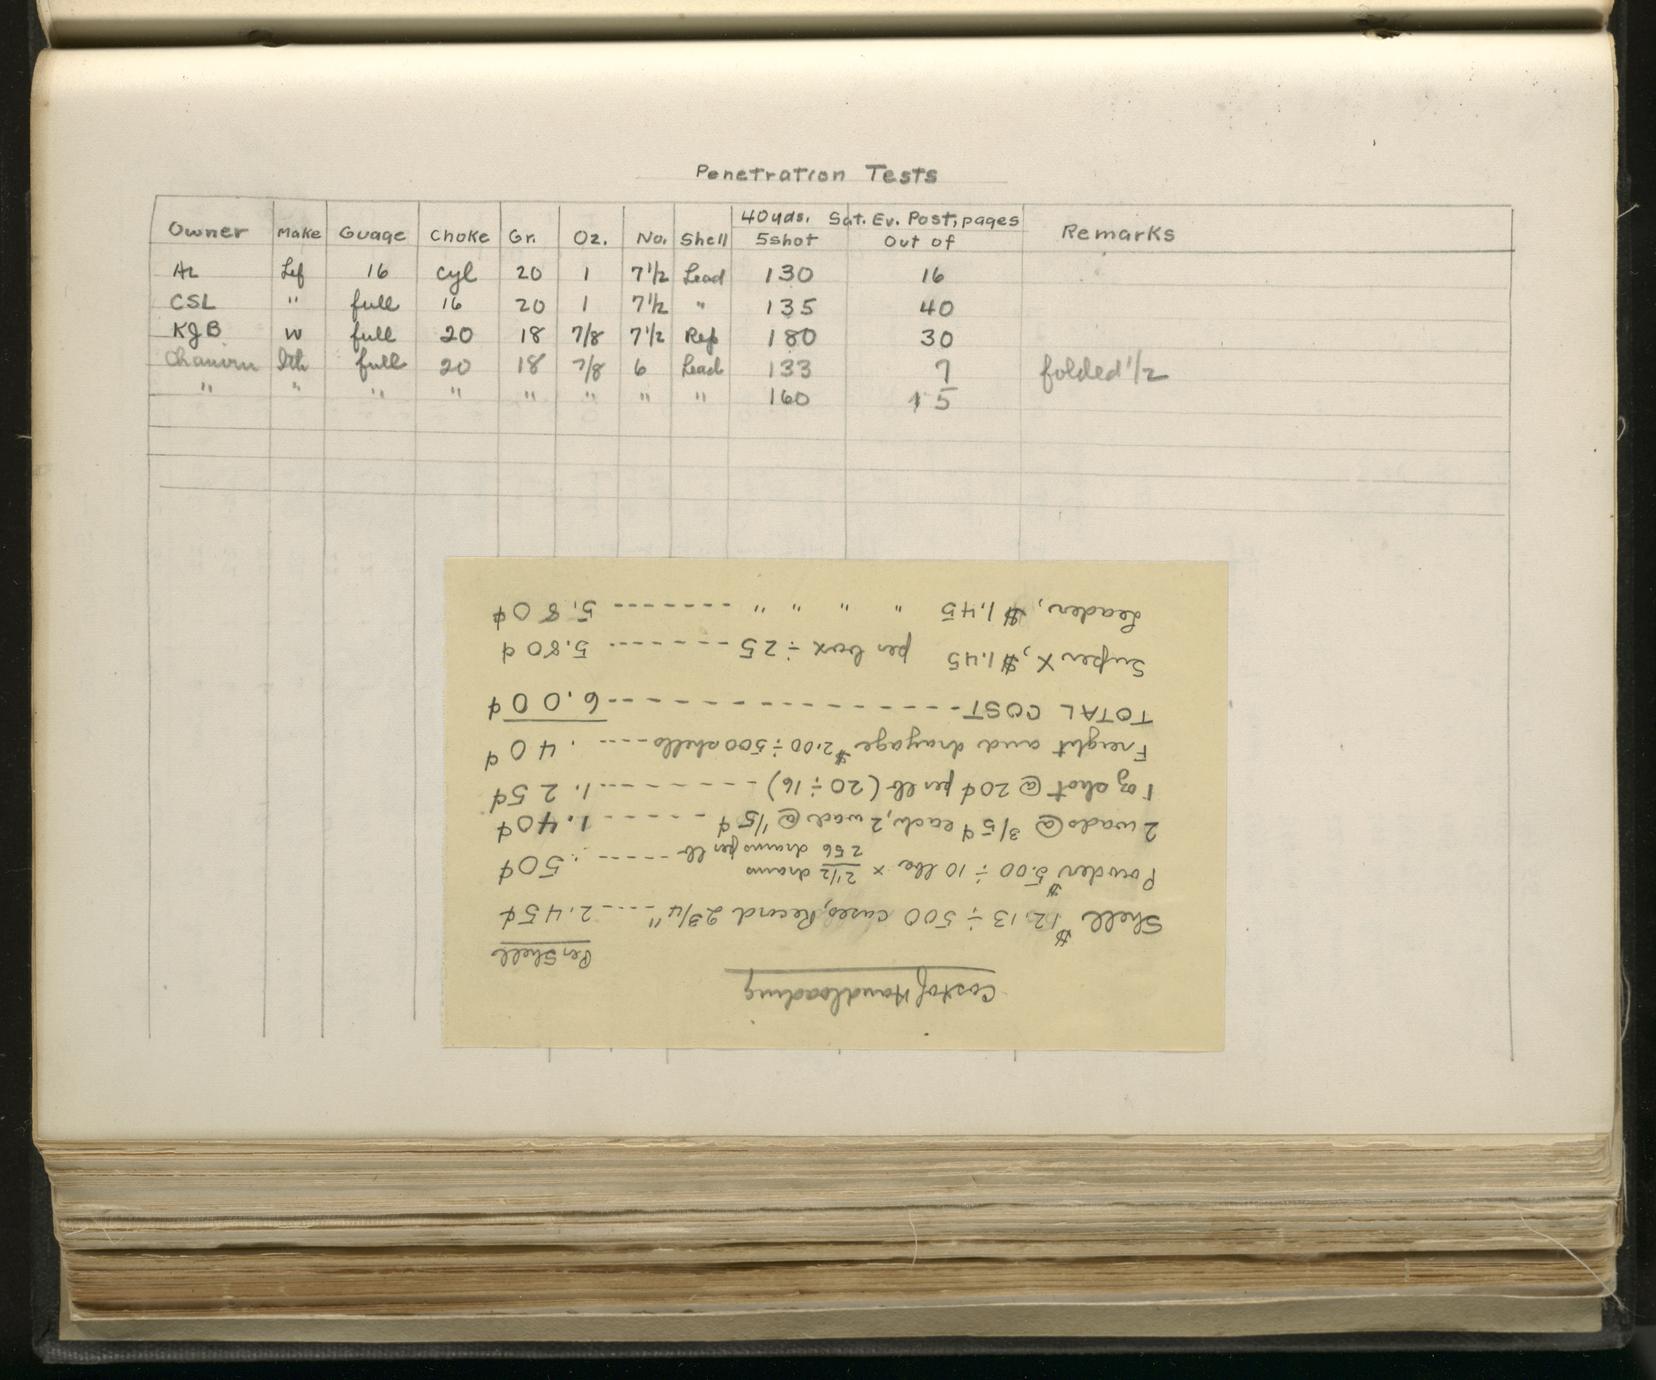 Penetration Tests
Owner Make Guage Choke Gr. Oz. No. Shell 40 yds. Sat. Ev. Post, pages Remarks
5 shot Out of
AL Lef 16 cyl 20 1 7 1/2 Lead 130 16
CSL " full 16 20 1 7 1/2 " 135 40
KJB W full 20 18 7/8 7 1/2 Rep 180 30
Ith full 20 18 7/8 6 Lead 133 7 folded 1/2
" " " " " " " " 160 15
Cost of Handloading
Per Shell
Shell $12.13 ÷ 500 cases, Record 2 3/4" ---- 2.45¢
Powder $5.00 ÷ 10 lbs × 2 1/2 drams / 256 drams per lb ---- .50¢
2 wads @ 3/5¢ each, 2 wads @ 1/5¢ ---- 1.40¢
1 oz shot @ 20¢ per lb (20 ÷ 16) ---- 1.25¢
Freight and drayage $2.00 ÷ 500 shells ---- .40¢
TOTAL COST ---- 6.00¢
Super X, $1.45 per box ÷ 25 ---- 5.80¢
Leader, $1.45 " " " " ---- 5.80¢